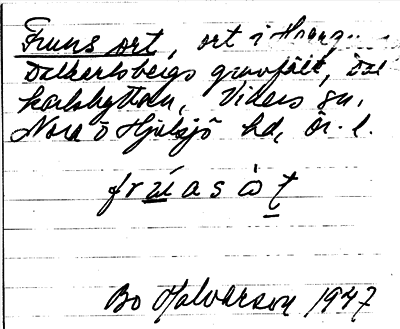 Fruns ort, ort i
Dalkarlsbergs gruvfält,
Karlshyttan, Vikers sn,
Nora o Hjulsjö hd, Ör. l.
frúasòt
Bo Halvarson 1947